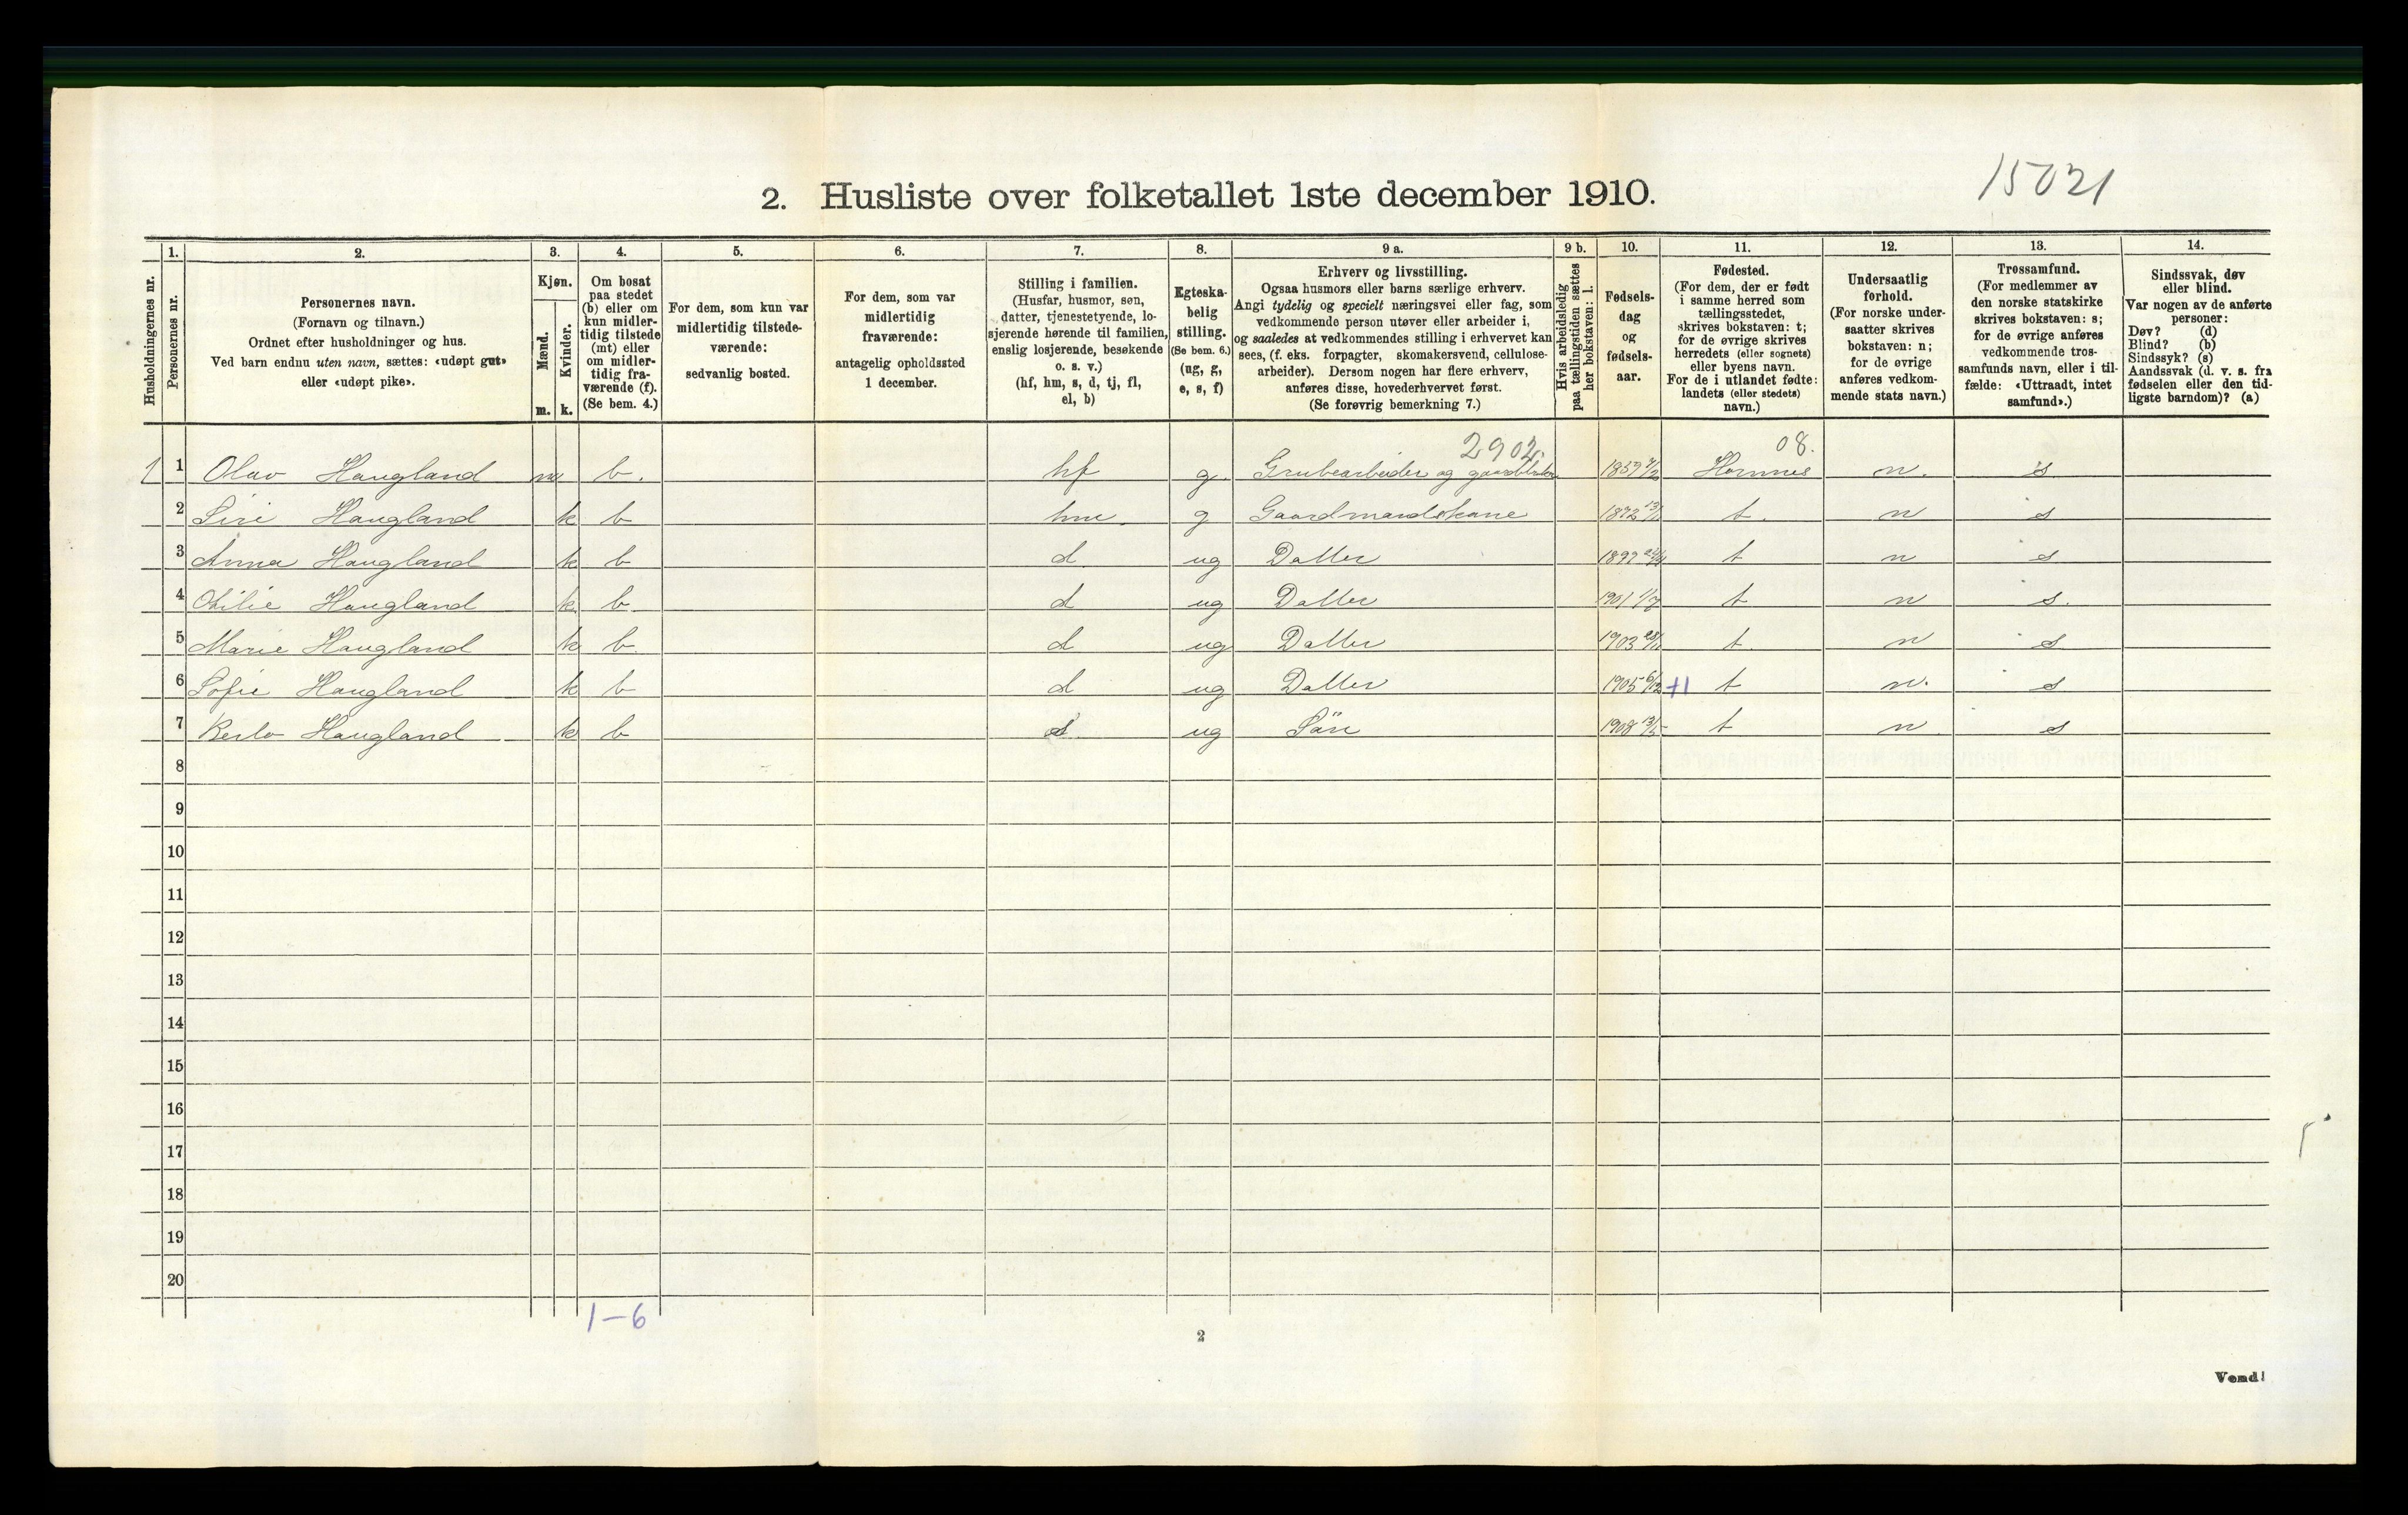 15021
2. Husliste over folketallet 1ste december 1910.
Husholdningernes nr.
1.
Personernes nr.
2.
Personernes navn.
(Fornavn og tilnavn.)
Ordnet efter husholdninger og hus.
Ved barn endnu uten navn, sættes: «udøpt gut»
eller «udøpt pike».
3.
Kjøn.
Mænd.
m.
Kvinder.
k.
4.
Om bosat
paa stedet
(b) eller om
kun midler-
tidig tilstede
(mt) eller
om midler-
tidig fra-
værende (f).
(Se bem. 4.)
5.
For dem, som kun var
midlertidig tilstede-
værende:
sedvanlig bosted.
6.
For dem, som var
midlertidig
fraværende:
antagelig opholdssted
1 december.
7.
Stilling i familien.
(Husfar, husmor, søn,
datter, tjenestetyende, lo-
sjerende hørende til familien,
enslig losjerende, besøkende
o. s. v.)
(hf, hm, s, d, tj, fl,
el, b)
8.
Egteska-
belig
stilling.
(Se bem. 6.)
(ug, g,
e, s, f)
9 a.
Erhverv og livsstilling.
Ogsaa husmors eller barns særlige erhverv.
Angi tydelig og specielt næringsvei eller fag, som
vedkommende person utøver eller arbeider i,
og saaledes at vedkommendes stilling i erhvervet kan
sees, (f. eks. forpagter, skomakersvend, cellulose-
arbeider). Dersom nogen har flere erhverv,
anføres disse, hovederhvervet først.
(Se forøvrig bemerkning 7.)
9 b.
Hvis arbeidsledig
paa tællingstiden sættes
her bokstaven: l.
10.
Fødsels-
dag
og
fødsels-
aar.
11.
Fødested.
(For dem, der er født
i samme herred som
tællingsstedet,
skrives bokstaven: t;
for de øvrige skrives
herredets (eller sognets)
eller byens navn.
For de i utlandet fødte:
landets (eller stedets)
navn.)
12.
Undersaatlig
forhold.
(For norske under-
saatter skrives
bokstaven: n;
for de øvrige
anføres vedkom-
mende stats navn.)
13.
Trossamfund.
(For medlemmer av
den norske statskirke
skrives bokstaven: s;
for de øvrige anføres
vedkommende tros-
samfunds navn, eller i til-
fælde: «Uttraadt, intet
samfund».)
14.
Sindssvak, døv
eller blind.
Var nogen av de anførte
personer:
Døv? (d)
Blind? (b)
Sindssyk? (s)
Aandssvak (d. v. s. fra
fødselen eller den tid-
ligste barndom)? (a)
2902. 08.
1 1 Olav Haugland m b. hf g. Grubearbeider og 1859 Hornnes n. s
2 Siri Haugland k b hm. g Gaardmandskone 1872 t. n s
3 Anna Haugland k b d ug Datter 1897 t n s
4 Otilie Haugland k. b. d ug Datter 1901 1/7 t n s.
5 Marie Haugland k b d ug Datter 1903 t. n s
6 Sofie Haugland k b d ug Datter 1905 6/12 +1 t n. s
7 Haugland k b ug Sön 1908 t n. s
8
9
10
11
12
13
14
15
16
17
18
19
20
1-6
2
Vend!